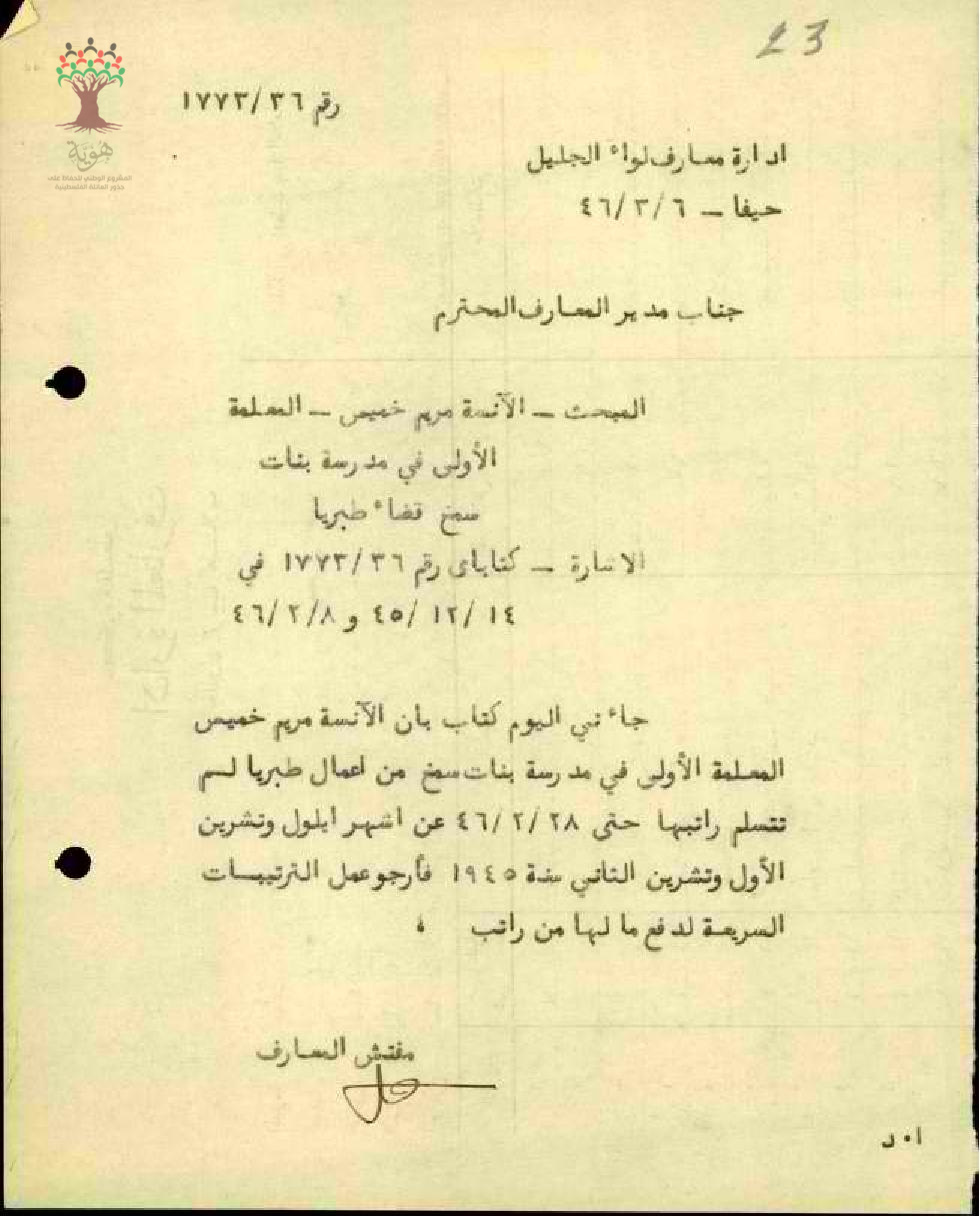 23
هوية
المشروع الوطني للحفاظ على
جذور العائلة الفلسطينية
رقم ١٧٧٣/٣٦
ادارة معارف لواء الجليل
حيفا - ٤٦/٣/٦
جناب مدير المعارف المحترم
المبحث - الآنسة مريم خميس - المعلمة
الأولى في مدرسة بنات
سمخ قضاء طبريا
الاشارة - كتاباى رقم ١٧٧٣/٣٦ في
٤٥/١٢/١٤ و ٤٦/٢/٨
جاءني اليوم كتاب بان الآنسة مريم خميس
المعلمة الأولى في مدرسة بنات سمخ من اعمال طبريا لم
تتسلم راتبها حتى ٤٦/٢/٢٨ عن اشهر ايلول وتشرين
الأول وتشرين الثاني سنة ١٩٤٥ فأرجو عمل الترتيبات
السريعة لدفع ما لها من راتب ٠
مفتش المعارف
ا٠د